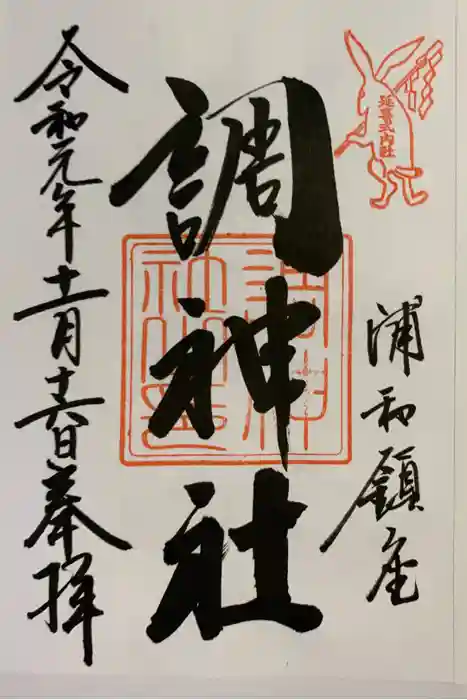 延喜式内社
浦和鎮座
調神社
調神社印
令和元年十一月十六日奉拝